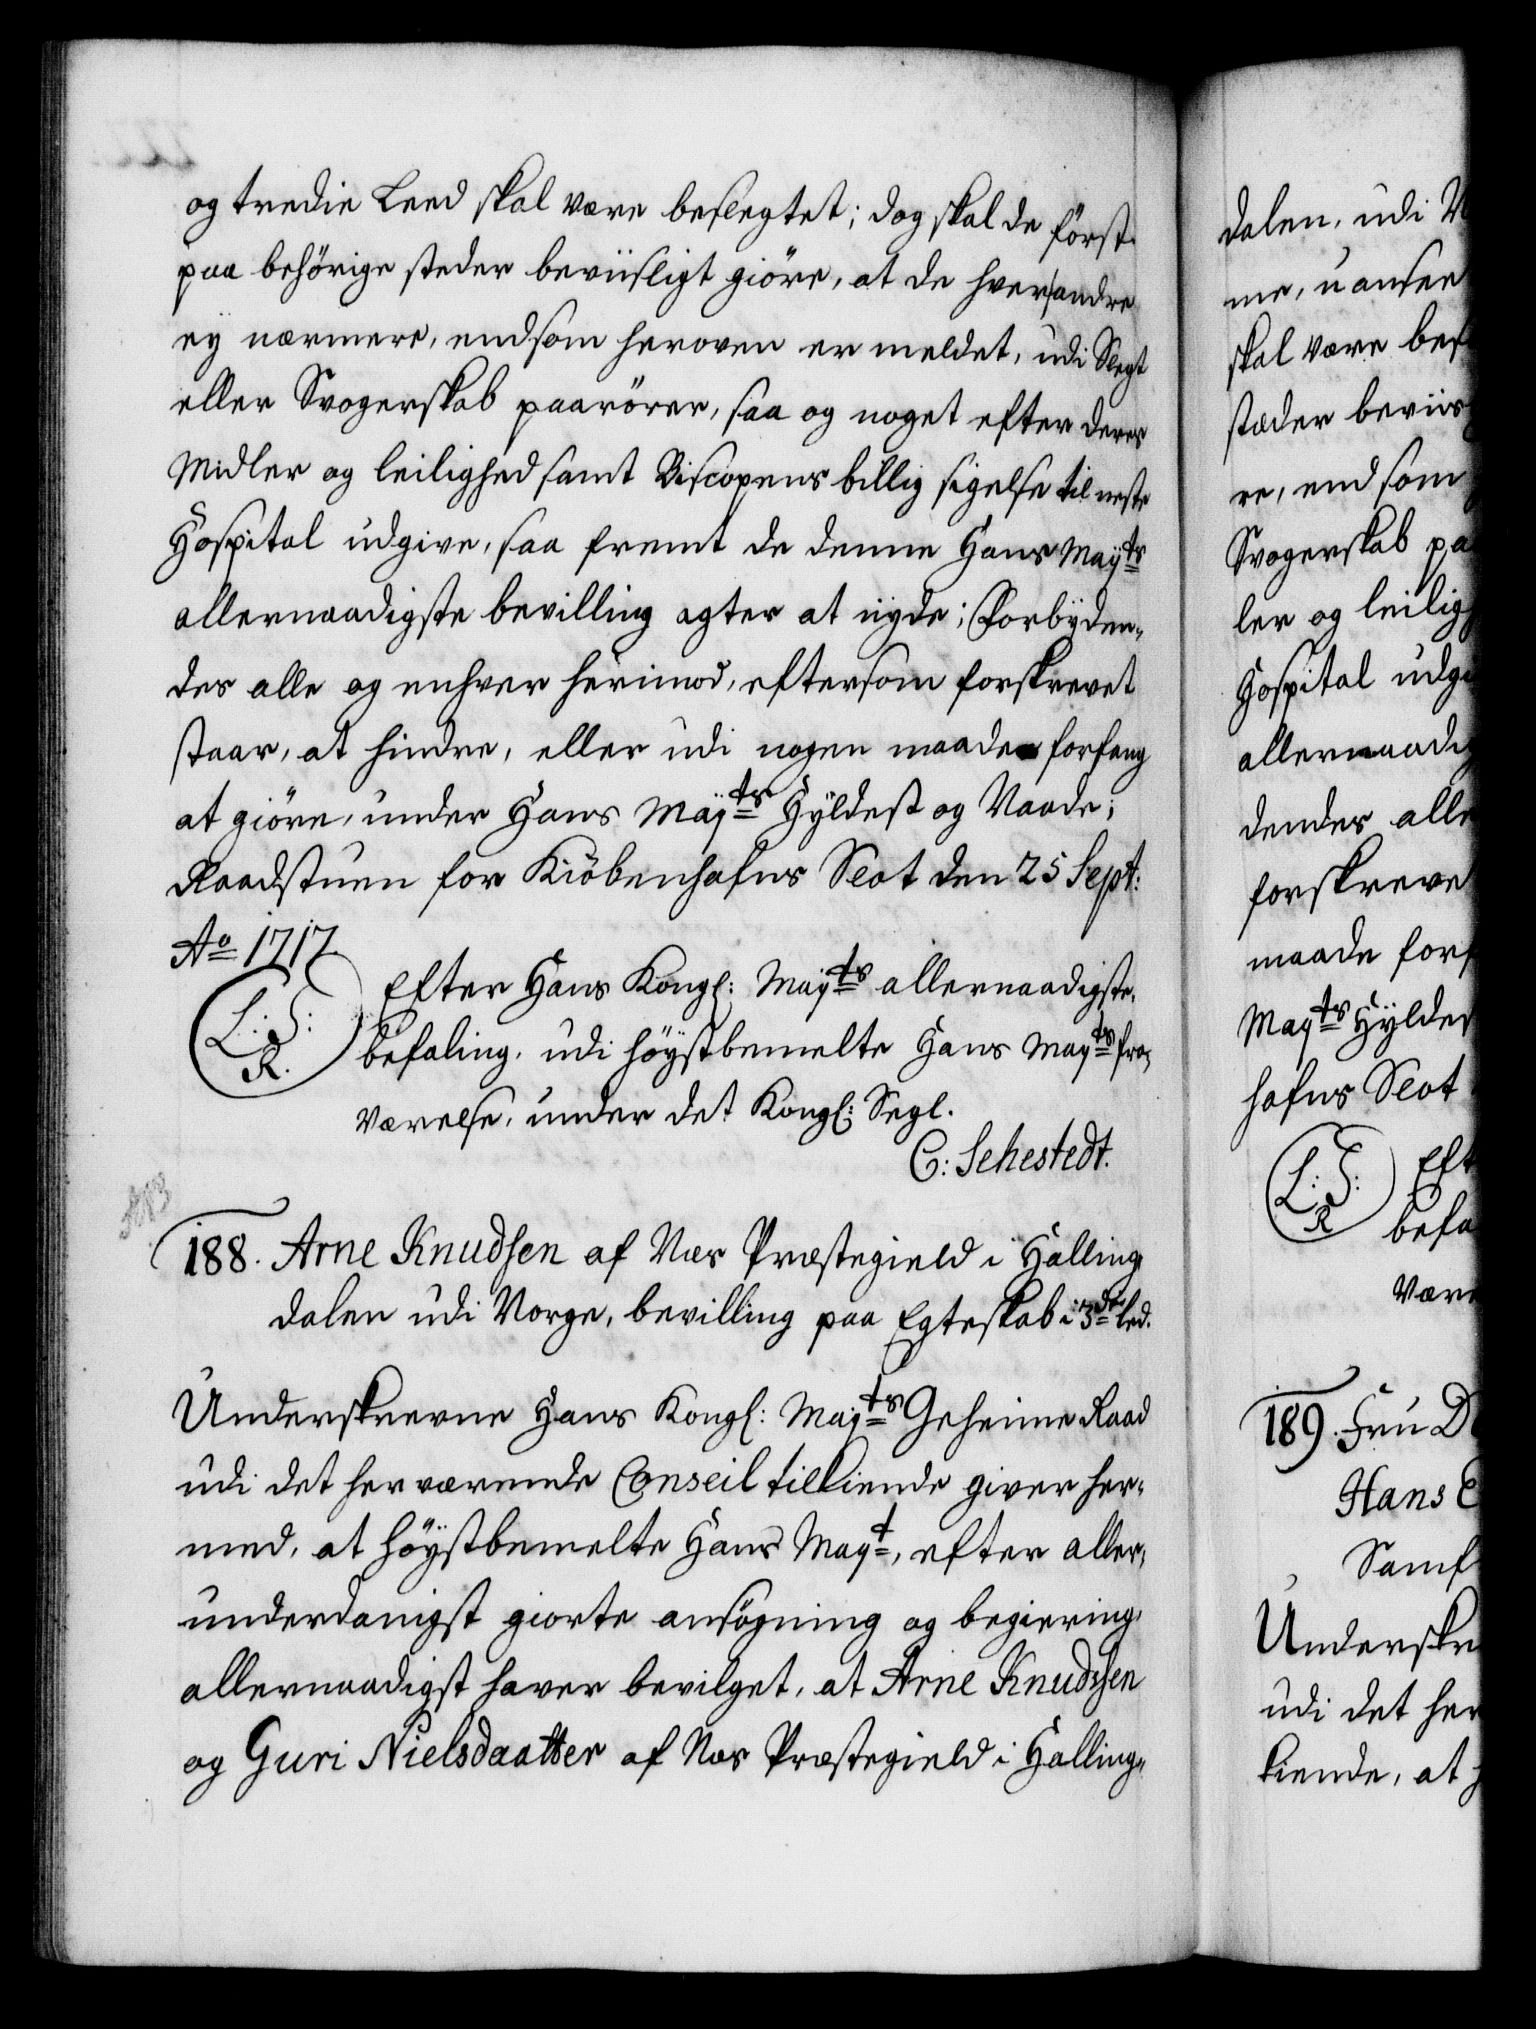 og tredie Leed skal være beslegtet; dog skal de först
paa behörige steder beviisligt giöre, at de hverandre
ey nærmere, end som heroven er meldet, udi Slegt
eller Svogerskab paarörer, saa og noget efter deres
Midler og leilighed samt Biscopens billig sigelse til neste
Hospital udgive, saa fremt de denne Hans Mayts
allernaadigste bevilling agter at nyde; Forbyden-
des alle og enhver herimod, eftersom forskrevet
staar, at hindre, eller udi nogen maade forfang
at giöre, under Hans Mayts Hyldest og Naade;
Raadstuen for Kiöbenhafns Slot den 25 Sept:
Ao 1717.
L: S:
R.
Efter Hans Kongl: Mayts allernaadigste
befaling, udi höystbemelte Hans Mayts fra-
Værelse, under det Kongl: Segl.
C: Sehestedt.
188. Arne Knudsen af Næs Præstegield i Halling-
dalen udi Norge, bevilling paa Egteskab i 3de led.
Underskrevne Hans Kongl: Mayts Geheime Raad
udi det herværende Conseil tilkiende giver her-
med, at höystbemelte Hans Mayt, efter aller-
underdanigst giorte ansögning og begiering,
allernaadigst haver bevilget, at Arne Knudsen
og Guri Nielsdaatter af Næs Præstegield i Halling-
dalen, udi N
me, uanseet
skal være bes
stæder beviis
re, end som
Svogerskab pa
ler og leilig
Hospital udgi
allernaadig
dendes alle
forskreve
maade forf
Mayts Hyldes
hafns Slot
L: S:
R
Eft
befa
Være
189. Fru D
Hans
Samf
Underskre
udi det her
kiende, at h